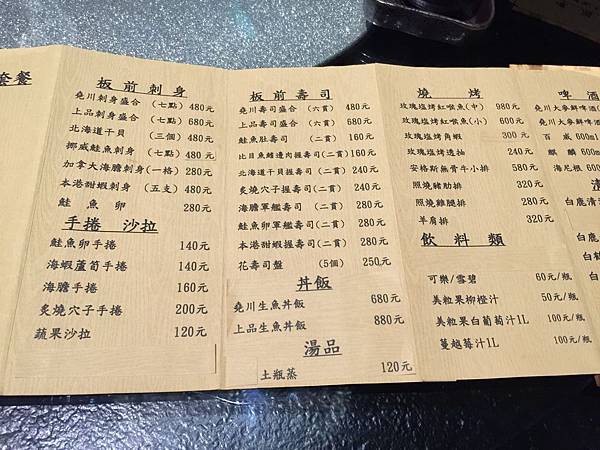 套餐
板前刺身
堯川刺身盛合 (七點) 480元
上品刺身盛合 (七點) 680元
北海道干貝 (三個) 480元
挪威鮭魚刺身 (七點) 480元
加拿大海膽刺身(一格) 280元
本港甜蝦刺身 (五支) 480元
鮭魚卵 280元
手捲 沙拉
鮭魚卵手捲 140元
海蝦蘆筍手捲 140元
海膽手捲 160元
炙燒穴子手捲 200元
蔬果沙拉 120元
板前壽司
堯川壽司盛合 (六貫) 480元
上品壽司盛合 (六貫) 680元
鮭魚肚壽司 (二貫) 160元
比目魚鰭邊肉握壽司(二貫) 160元
北海道干貝握壽司(二貫) 240元
炙燒穴子握壽司(二貫) 240元
海膽軍艦壽司 (二貫) 280元
鮭魚卵軍艦壽司(二貫) 280元
本港甜蝦握壽司(二貫) 280元
花壽司盤 (5個) 250元
丼飯
堯川生魚丼飯 680元
上品生魚丼飯 880元
湯品
土瓶蒸 120元
燒烤
玫瑰塩烤紅喉魚(中) 980元
玫瑰塩烤紅喉魚(小) 600元
玫瑰塩烤角蝦 300元
玫瑰塩烤透抽 240元
安格斯無骨牛小排 580元
照燒豬肋排 320元
照燒雞腿排 280元
羊肩排 320元
飲料類
可樂/雪碧 60元/瓶
美粒果柳橙汁 50元/瓶
美粒果白葡萄汁1L 100元/瓶
蔓越莓汁1L 100元/瓶
啤酒
堯川大麥鮮啤酒
堯川大麥鮮啤酒
百威 600ml
麒麟 600m
海尼根 600
清
白鹿清酒
白鹿
白鶴
白